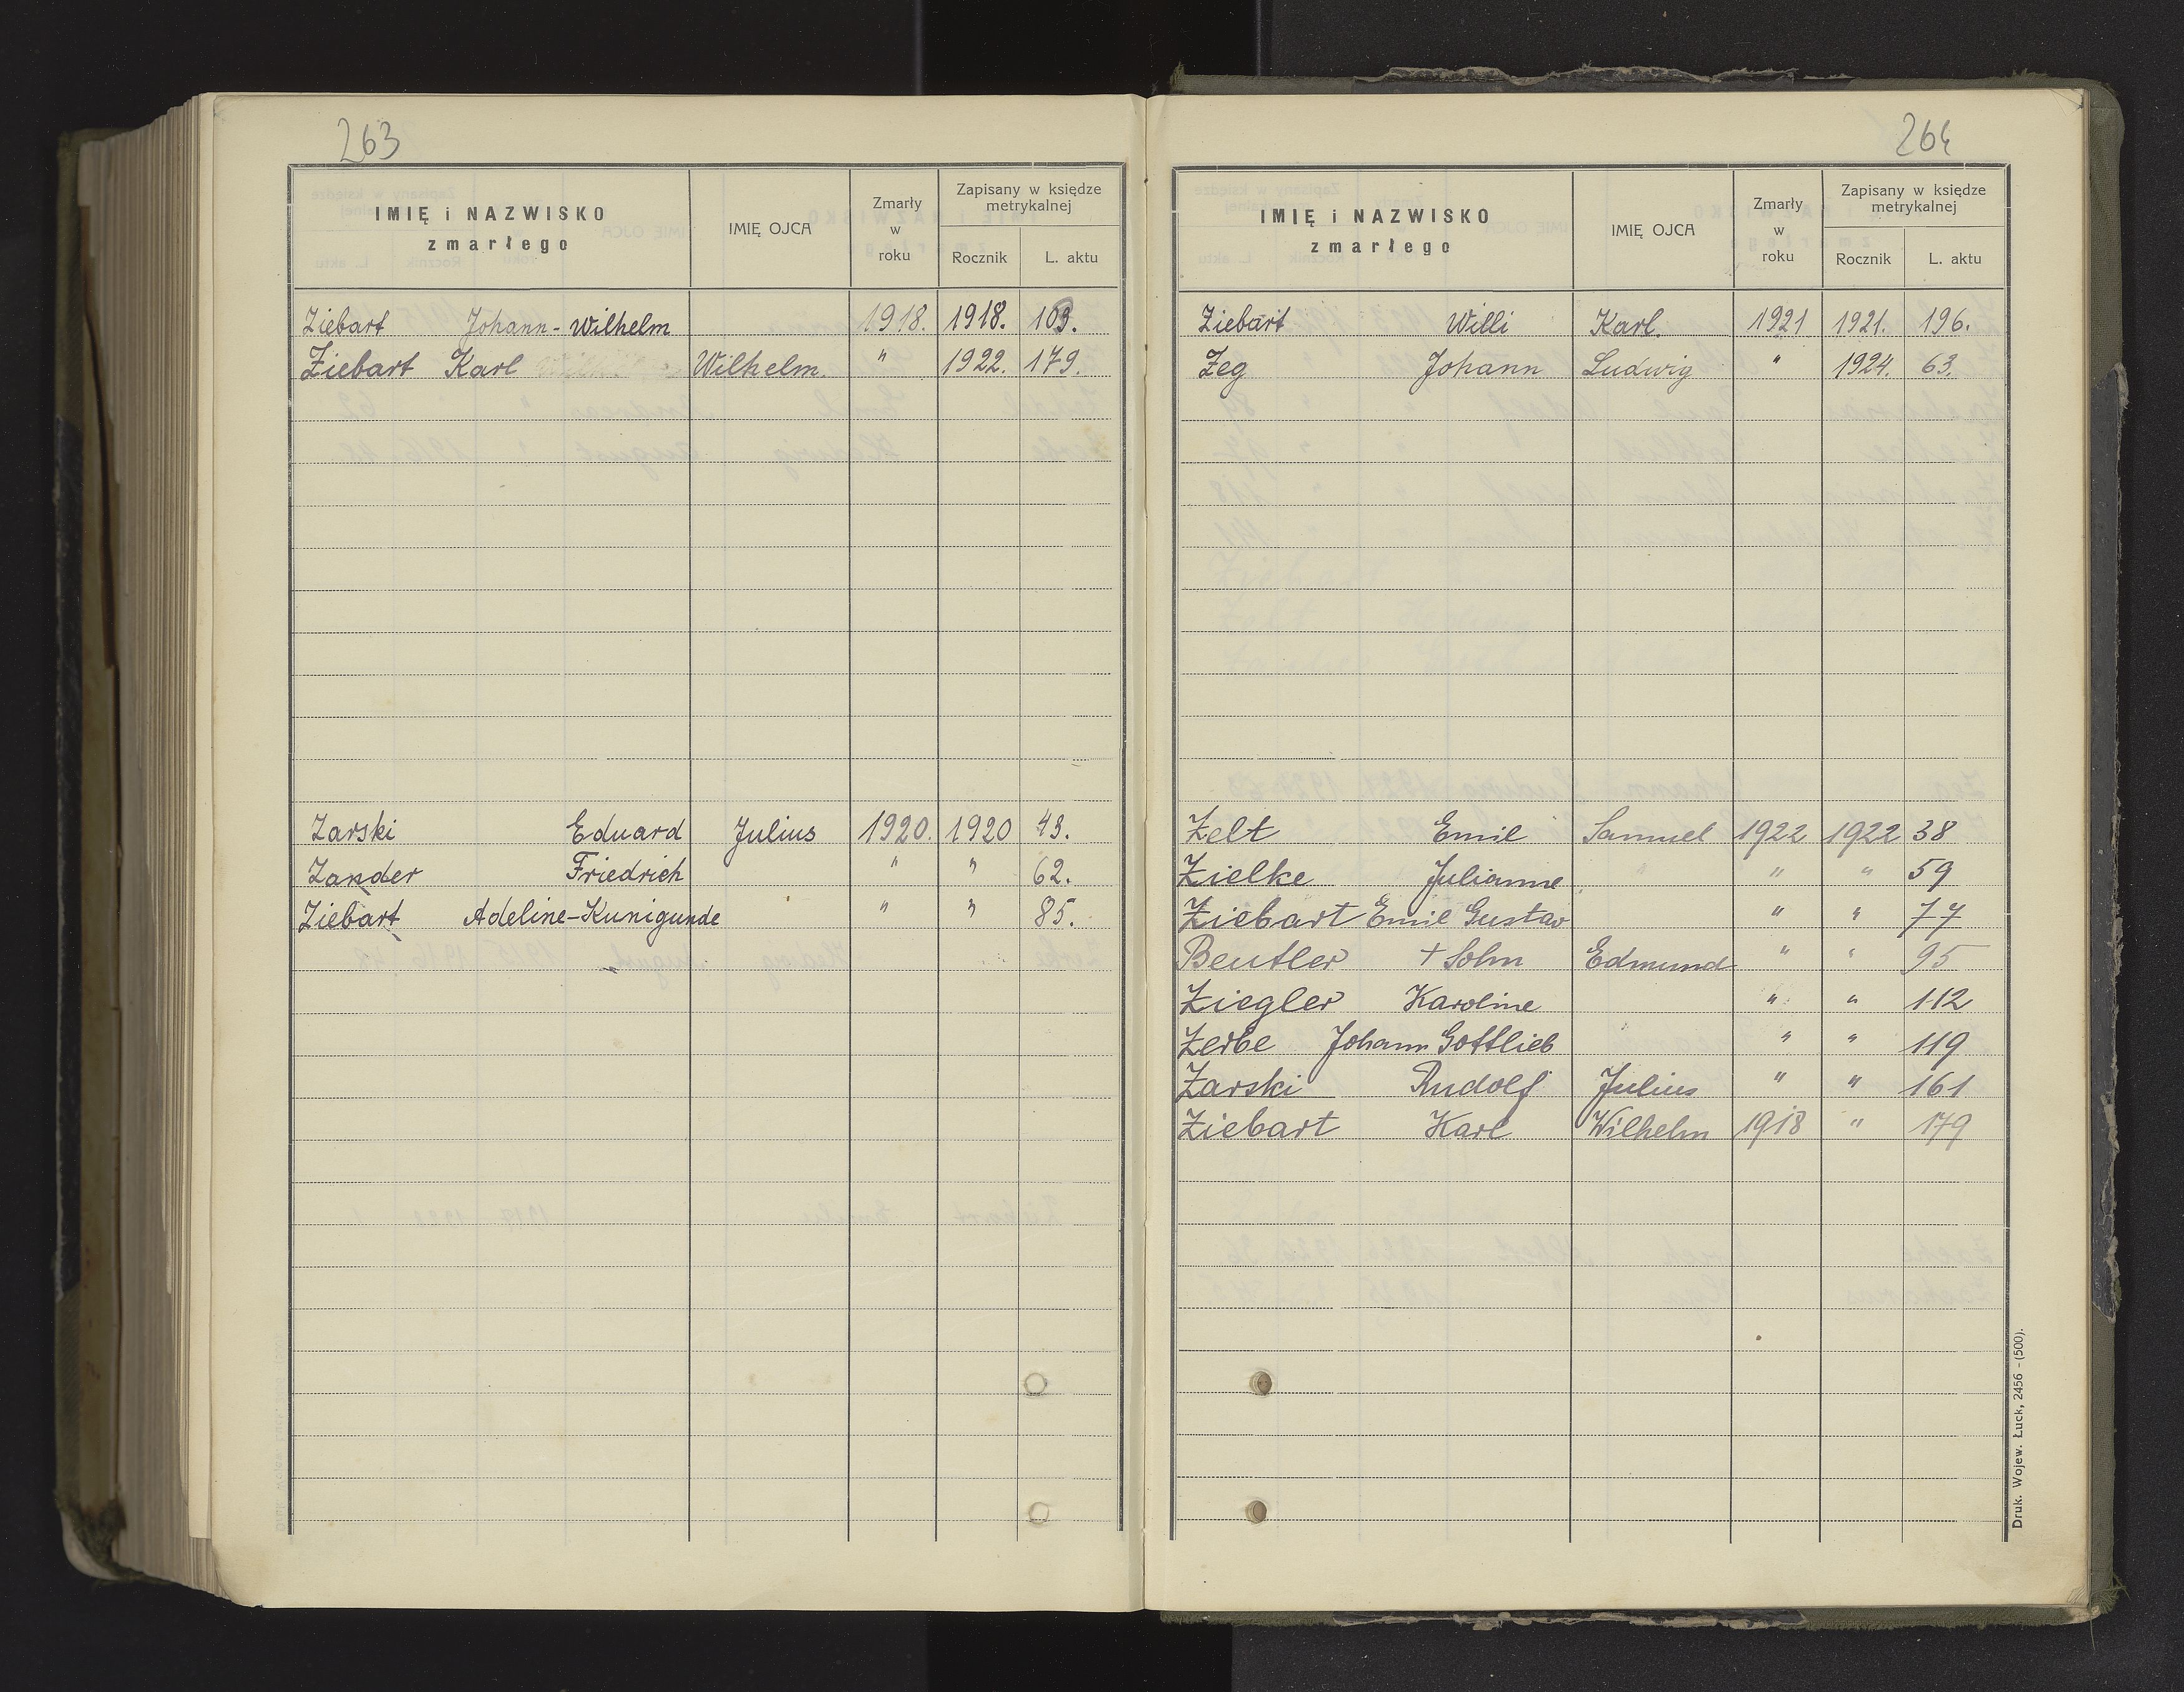 263
IMIĘ i NAZWISKO zmarłego IMIĘ OJCA Zmarły w roku Zapisany w księdze metrykalnej Rocznik L. aktu
Ziebart Johann-Wilhelm 1918. 1918. 103.
Ziebart Karl Wilhelm. " 1922. 179.
Zarski Eduard Julius 1920. 1920 43.
Zander Friedrich " " 62.
Ziebart Adeline-Kunigunde " " 85.
264
IMIĘ i NAZWISKO zmarłego IMIĘ OJCA Zmarły w roku Zapisany w księdze metrykalnej Rocznik L. aktu
Ziebart Willi Karl. 1921 1921. 196.
Zeg Johann Ludwig " 1924. 63.
Zelt Emil Samuel 1922 1922 38
Zielke Julianne " " 59
Ziebart Emil Gustav " " 77
Beutler + Sohn Edmund " " 95
Ziegler Karoline " " 112
Zerbe Johann Gottlieb " " 119
Zarski Rudolf Julius " " 161
Ziebart Karl Wilhelm 1918 " 179
Druk. Wojew. Łuck, 2456 - (500).